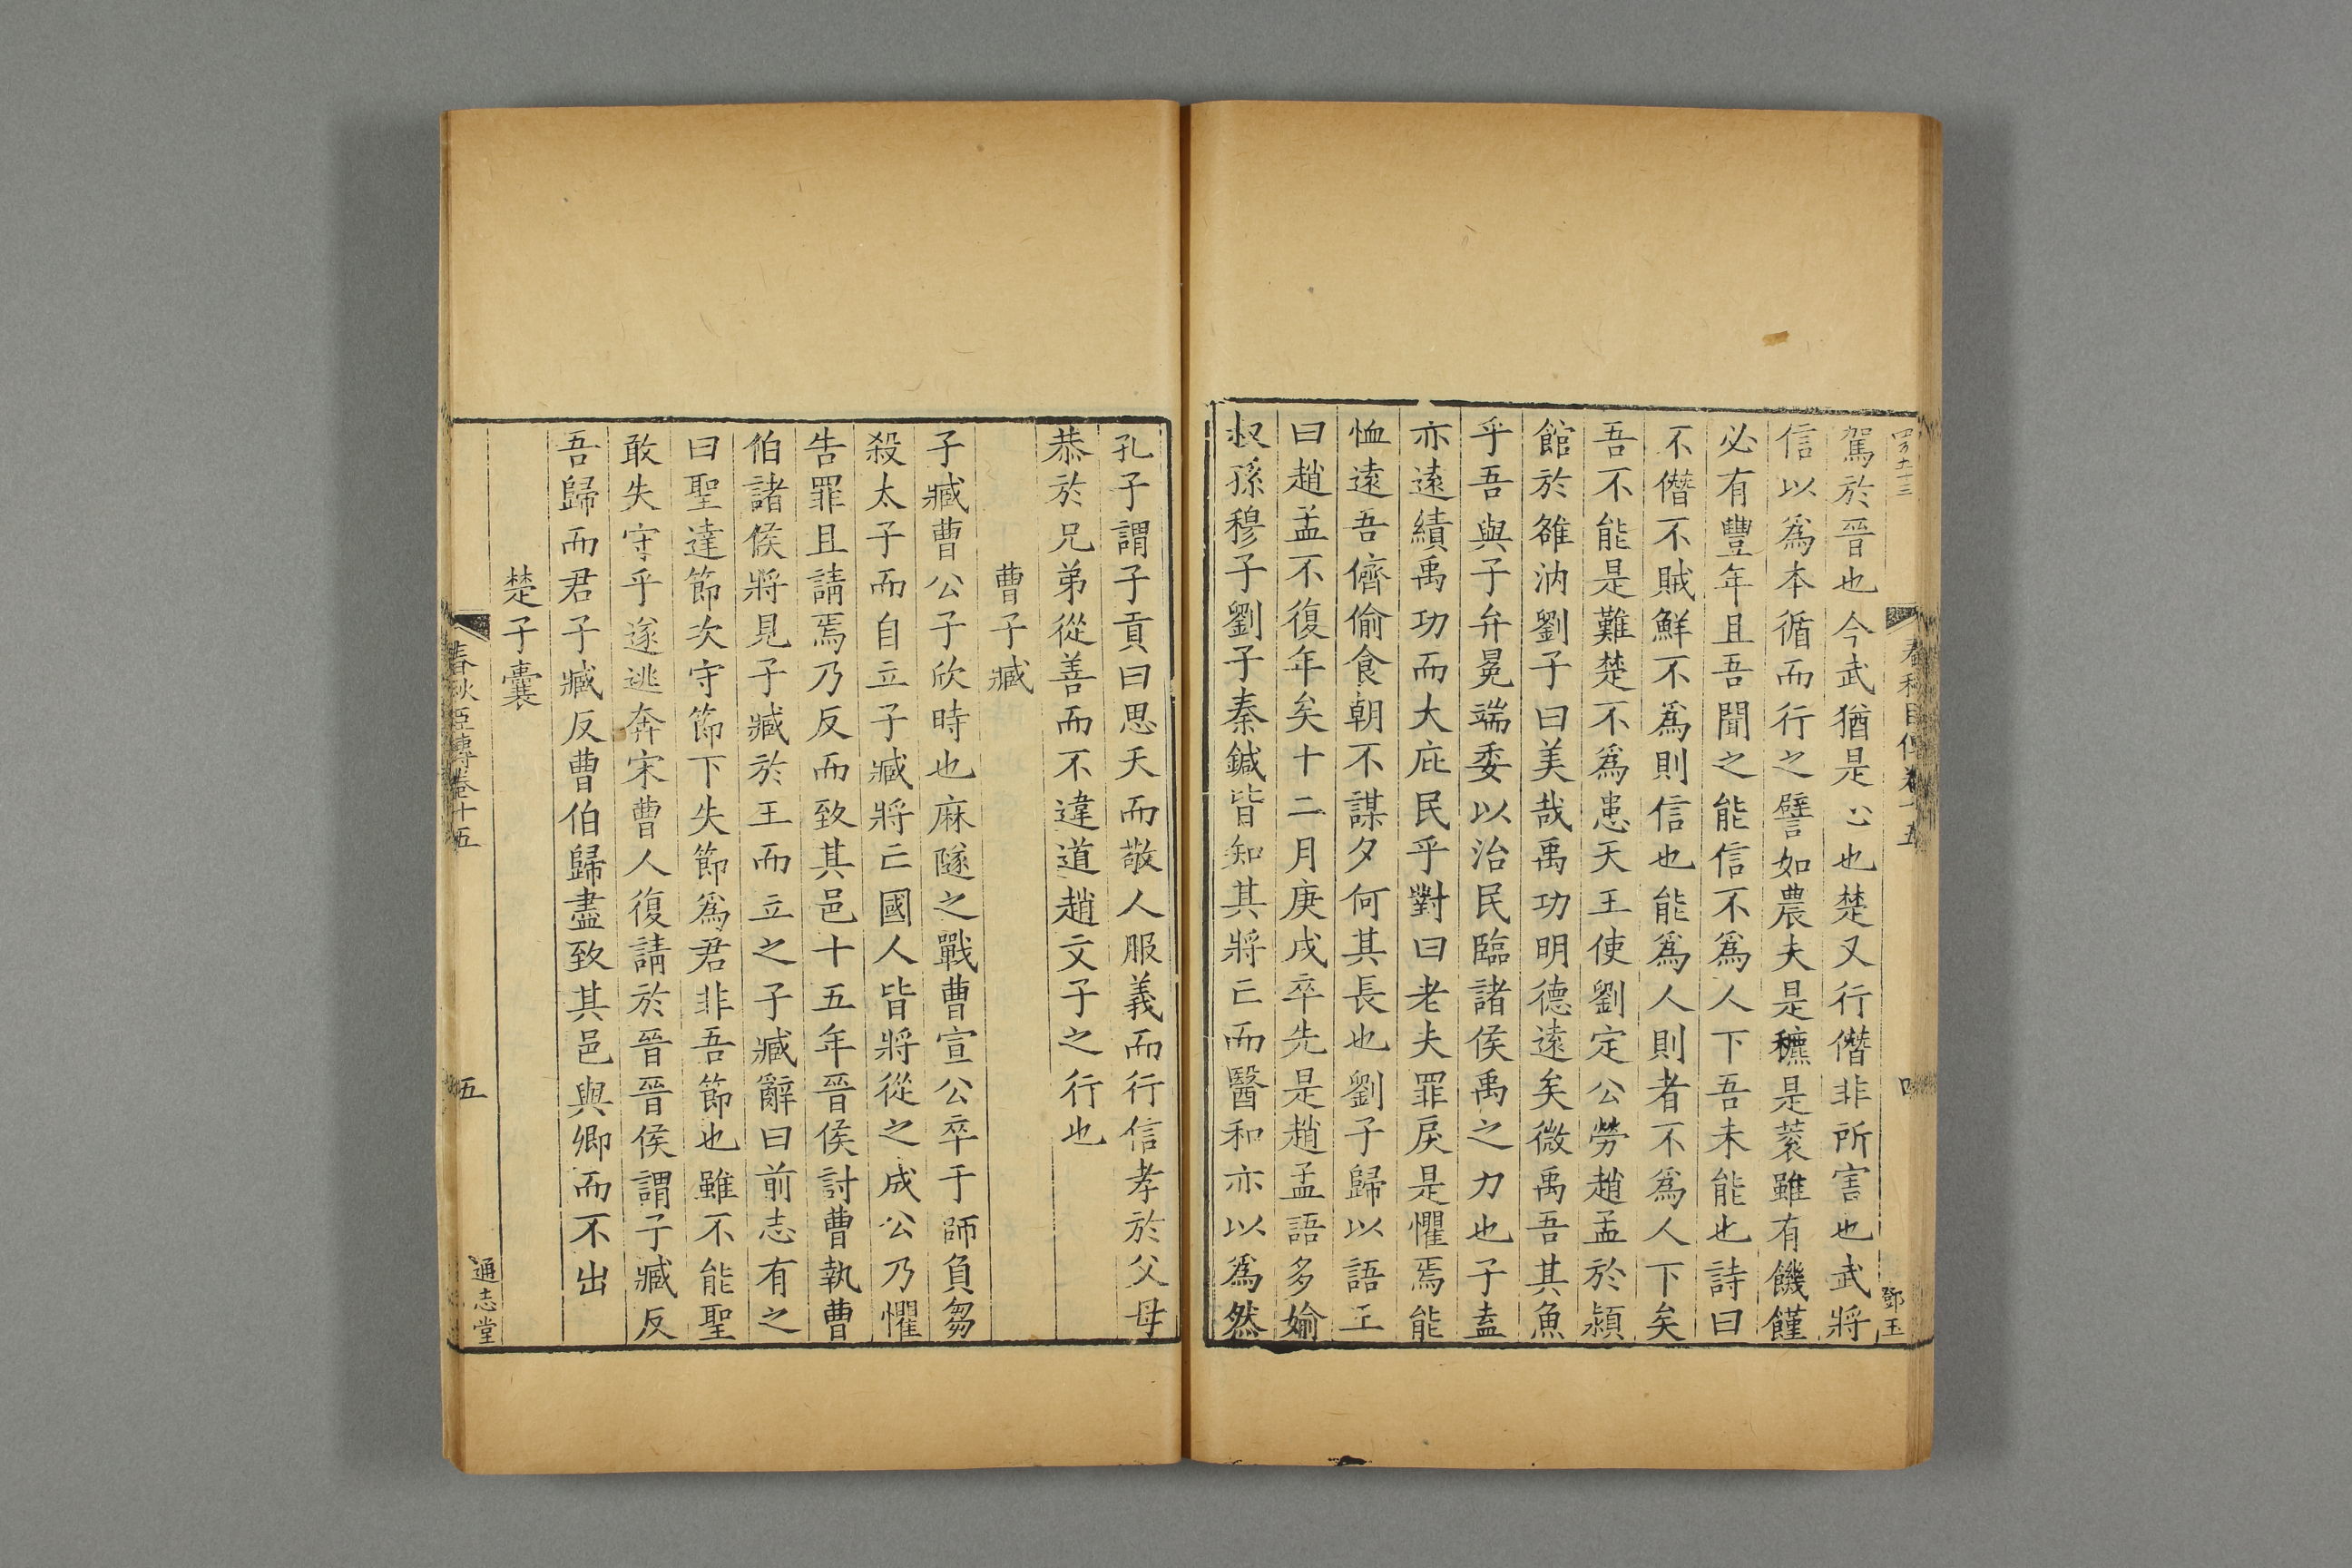 春秋臣傳卷十五
四
鄧玉
駕於晉也今武猶是心也楚又行僭非所害也武將
信以爲本循而行之譬如農夫是穮是蓘雖有饑饉
必有豐年且吾聞之能信不爲人下吾未能也詩曰
不僭不賊鮮不爲則信也能爲人則者不爲人下矣
吾不能是難楚不爲患天王使劉定公勞趙孟於潁
館於雒汭劉子曰美哉禹功明德遠矣微禹吾其魚
乎吾與子弁冕端委以治民臨諸侯禹之力也子盍
亦遠績禹功而大庇民乎對曰老夫罪戾是懼焉能
恤遠吾儕偷食朝不謀夕何其長也劉子歸以語王
曰趙孟不復年矣十二月庚戌卒先是趙孟語多媮
叔孫穆子劉子秦鍼皆知其將亡而醫和亦以爲然
孔子謂子貢曰思天而敬人服義而行信孝於父母
恭於兄弟從善而不違道趙文子之行也
曹子臧
子臧曹公子欣時也麻隧之戰曹宣公卒于師負芻
殺太子而自立子臧將亡國人皆將從之成公乃懼
告罪且請焉乃反而致其邑十五年晉侯討曹執曹
伯諸侯將見子臧於王而立之子臧辭曰前志有之
曰聖達節次守節下失節爲君非吾節也雖不能聖
敢失守乎遂逃奔宋曹人復請於晉晉侯謂子臧反
吾歸而君子臧反曹伯歸盡致其邑與卿而不出
楚子囊
春秋臣傳卷十五
五
通志堂